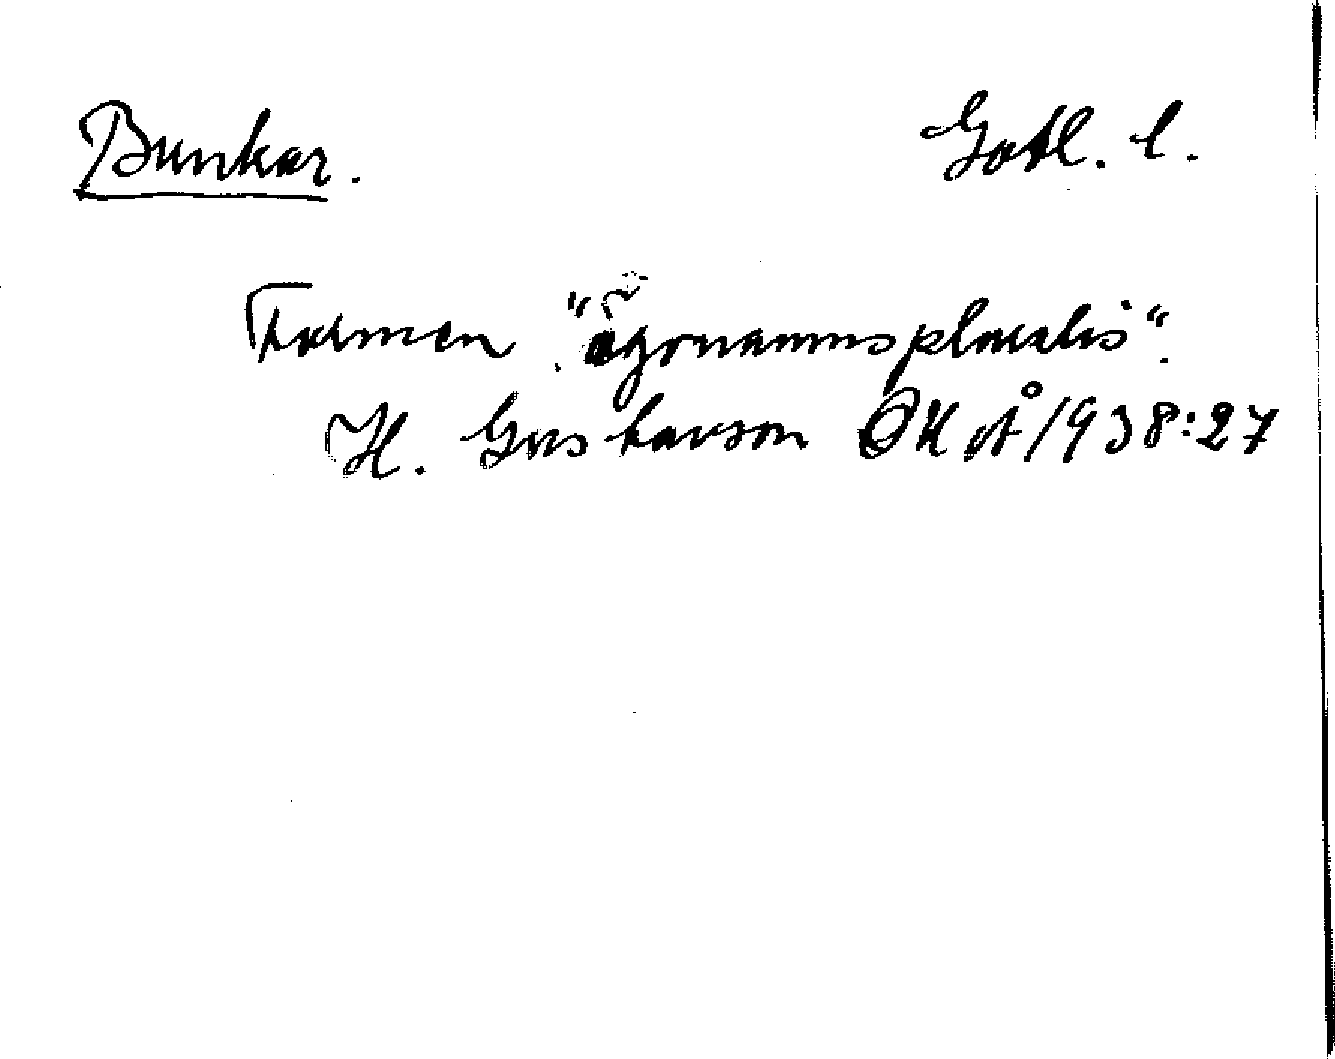 Bunkar.
Gotl. l.
Formen "ägonamns pluralis".
H. Gustavson OUÅ 1938:27